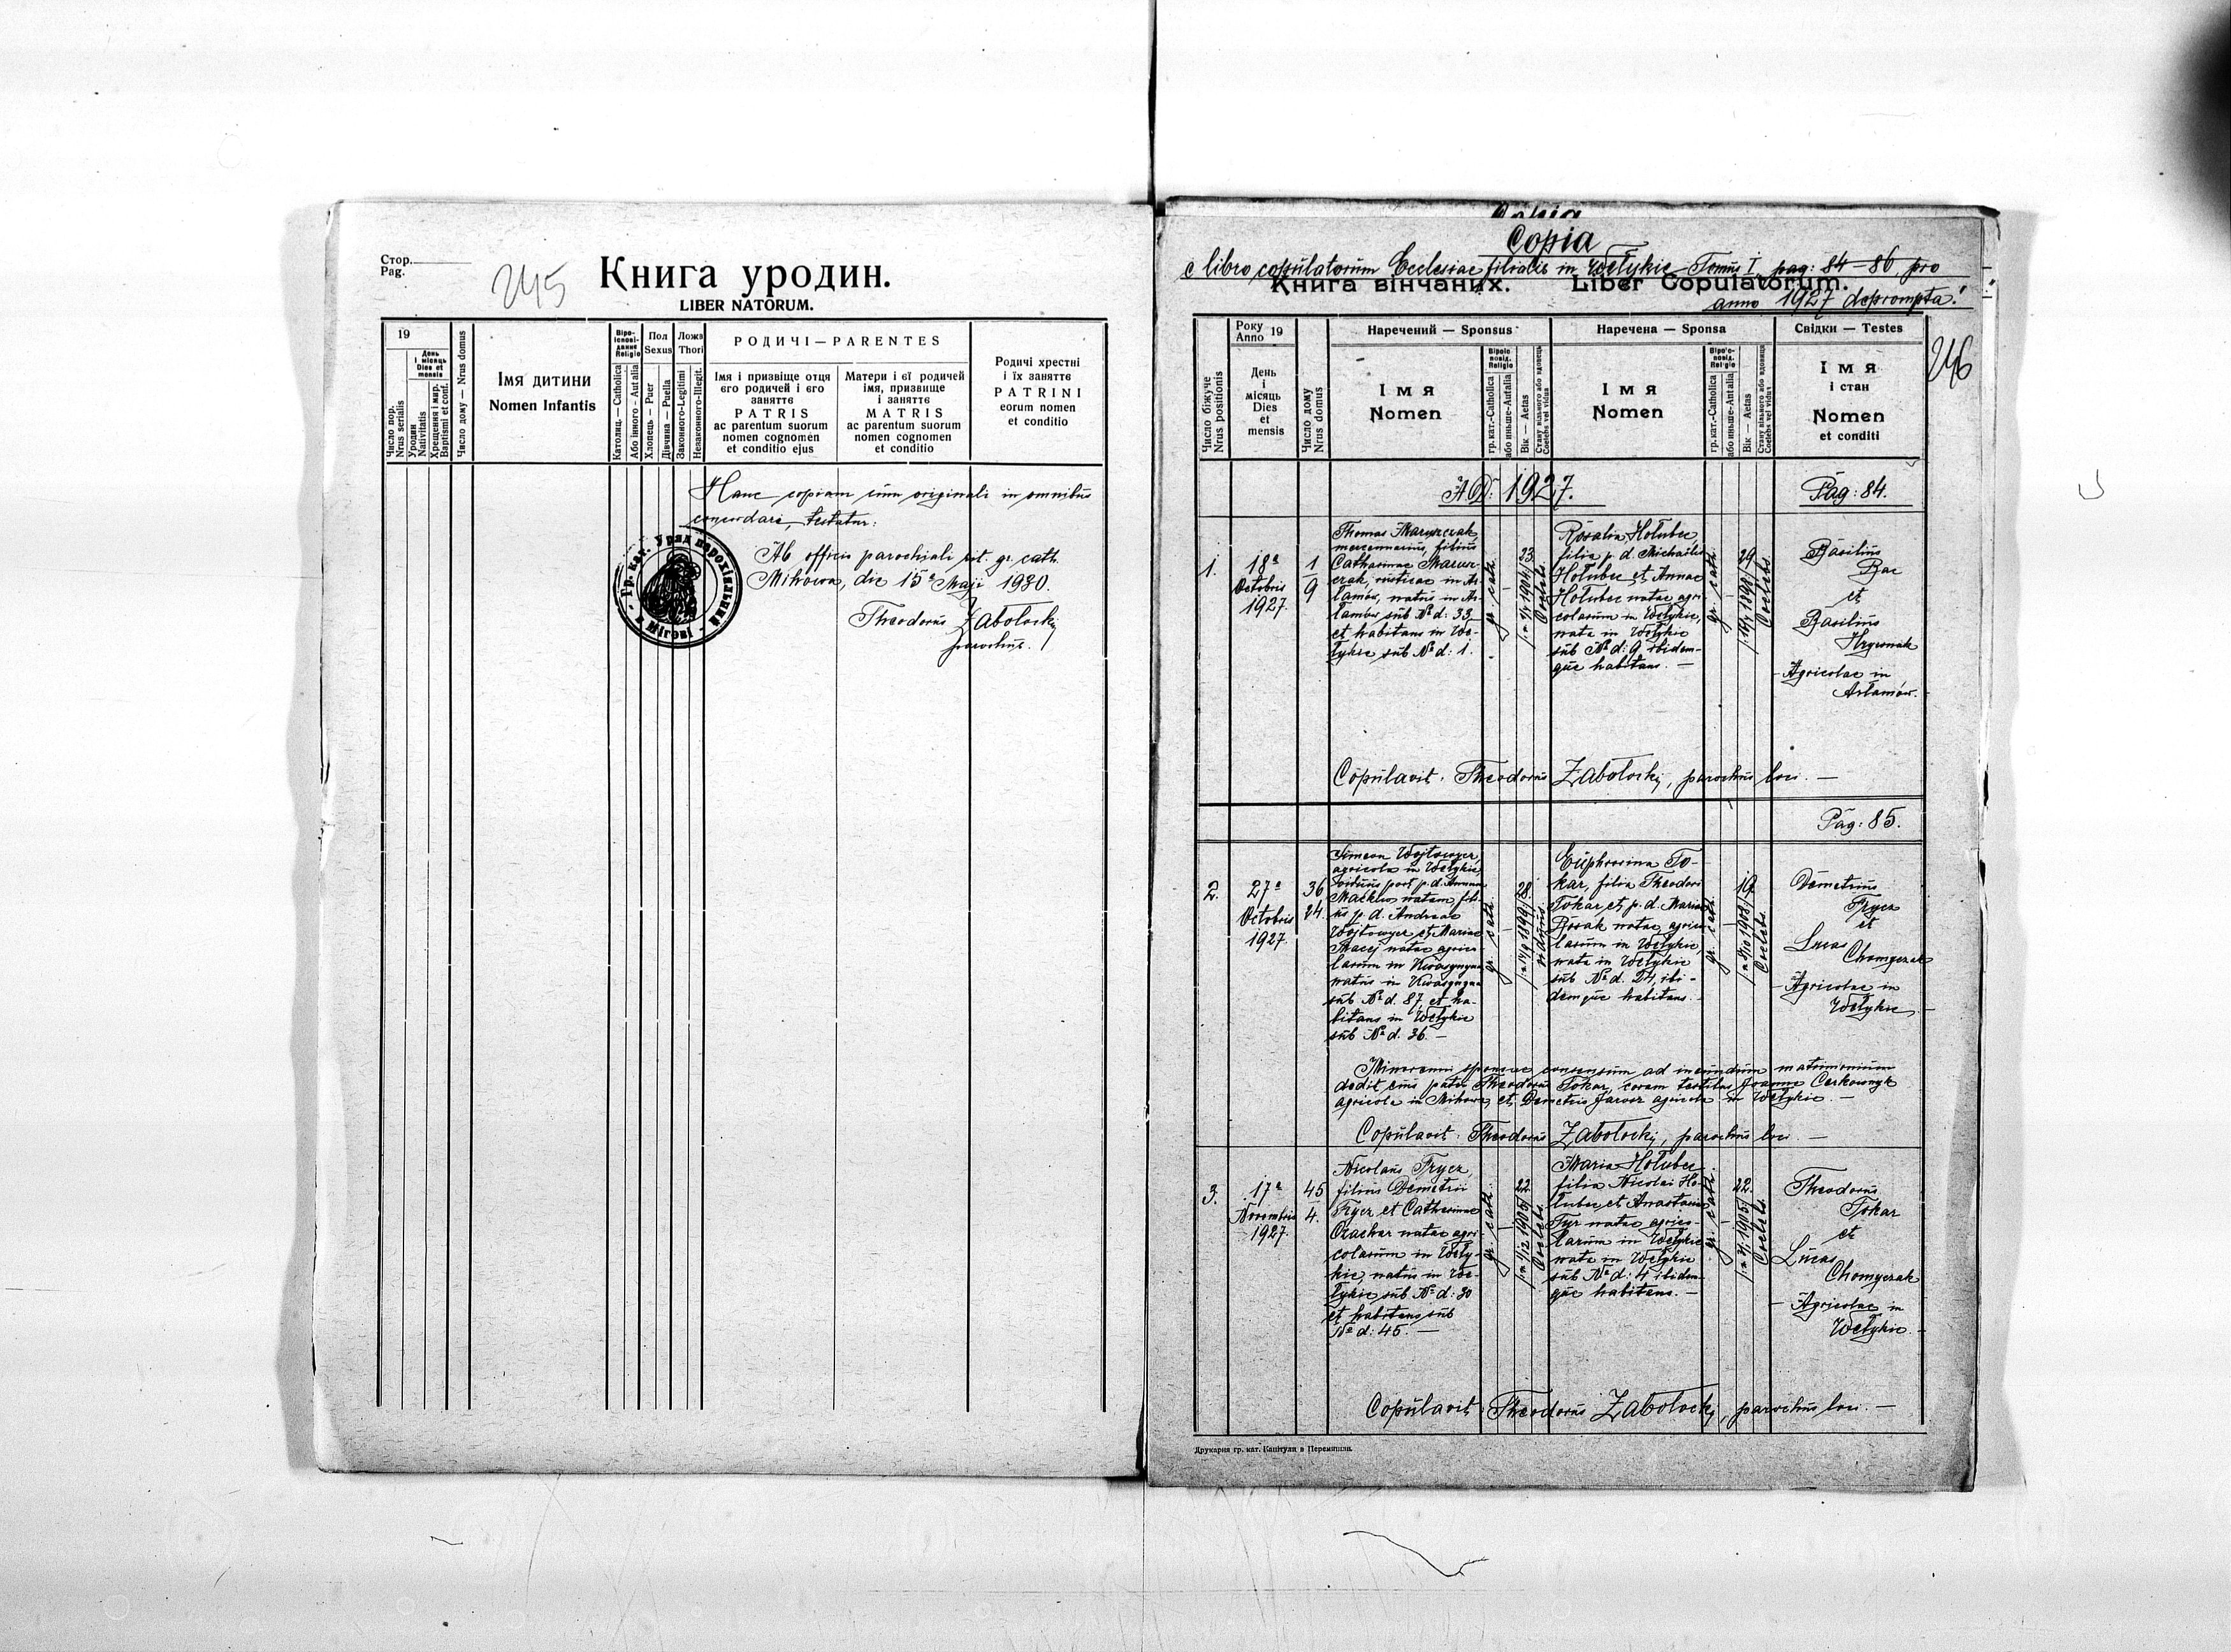 Стор.
Pag.
245
Книга уродин.
LIBER NATORUM.
19
Число пор.
Nrus serialis
День
і місяць
Dies et
mensis
Уродин
Nativitatis
Хрещення і мир.
Baptismi et conf.
Число дому — Nrus domus
Імя дитини
Nomen Infantis
Віро-
ісповідання
Religio
Католиц. — Catholica
Або інного - Aut alia
Пол
Sexus
Хлопець — Puer
Дівчина — Puella
Ложа
Thori
Законного-Legitimi
Незаконного-Illegit.
РОДИЧІ — PARENTES
Імя і призвіще отця
єго родичей і єго
заняттє
PATRIS
ac parentum suorum
nomen cognomen
et conditio ejus
Матери і єї родичей
імя, призвище
і заняттє
MATRIS
ac parentum suorum
nomen cognomen
et conditio
Родичі хрестні
і їх заняттє
PATRINI
eorum nomen
et conditio
Hanc copiam cum originali in omnibus
concordari, testatur:
Ab officio parochiali rit. gr. cath.
Mihowa, die 15ª Maji 1930.
Theodorus Zabolocki
parochus.
Гр. кат. Уряд парохіяльний
в Мігові
Copia
Copia
e libro copulatorum Ecclesiae filialis in Wełykie Tomus I, pag: 84–86 pro
Книга вінчаних. Liber Copulatorum.
anno 1927 deprompta!
246
Число біжуче
Nrus positionis
Року
Anno 19
День
і
місяць
Dies
et
mensis
Число дому
Nrus domus
Наречений — Sponsus
ІМЯ
Nomen
гр. кат.-Catholica
або иньше-Aut alia
Вік — Aetas
Стану вільного або вдовець
Coelebs vel viduus
Наречена — Sponsa
ІМЯ
Nomen
гр. кат.-Catholica
або иньше-Aut alia
Вік — Aetas
Стану вільного або вдовиця
Coelebs vel vidua
Свідки — Testes
ІМЯ
і стан
Nomen
et conditi
A D: 1927.
Pag: 84.
1.
18ª
Octobris
1927.
1
9
Thomas
mercennarius, filius
Catharinae
rusticae in Ar-
łamów, natus in Ar-
łamów sub Nº d: 33
et habitans in We-
łykie sub Nº d: 1.
gr. cath.
23
Coelebs
Rosalia Hołubec,
filia p. d. Michaelis
Hołubec et Annae
Hołubec natae agri-
colarum in Wełykie,
nata in Wełykie
sub Nº d: 9 ibidem-
que habitans. —
gr. cath.
29
Coelebs
Basilius
Bac
et
Basilius
Agricolae in
Arłamów. —
Copulavit: Theodorus Zabolocki, parochus loci. —
Pag: 85.
2.
27ª
Octobris
1927.
36
24.
Simeon Wojtowycz,
agricola in Wełykie,
viduus post p. d. Annam
natam, fili-
us p. d. Andreae
Wojtowycz et Mariae
natae agrico-
larum in
natus in
sub Nº d. 87, et ha-
bitans in Wełykie
sub Nº d. 36. —
gr. cath.
28
viduus
Euphrosina To-
kar, filia Theodori
Tokar et p. d. Mariae
natae agrico-
larum in Wełykie,
nata in Wełykie
sub Nº d. 24, ibi-
demque habitans. —
gr. cath.
19
Coelebs
Demetrius
Frycz
et
Lucas
Chomyczak
Agricolae in
Wełykie. —
Minorenni sponsae consensum ad ineundum matrimonium
dedit eius pater Theodorus Tokar, coram testibus Joanne Cerkownyk
agricola in Mihowa, et Demetrio agricola in Wełykie. —
Copulavit: Theodorus Zabolocki, parochus loci. —
3.
17ª
Novembris
1927.
45
4.
Nicolaus Frycz,
filius Demetrii
Frycz et Catharinae
natae agri-
colarum in Weły-
kie, natus in We-
łykie sub Nº d: 30
et habitans sub
Nº d: 45. —
gr. cath.
22
Coelebs
Maria Hołubec
filia Nicolai Ho-
łubec et Anastasiae
Tyr natae agrico-
larum in Wełykie
nata in Wełykie
sub Nº d: 4 ibidem-
que habitans. —
gr. cath.
22
Coelebs
Theodorus
Tokar
et
Lucas
Chomyczak
Agricolae in
Wełykie. —
Copulavit: Theodorus Zabolocki, parochus loci. —
Друкарня гр. кат. Капітули в Перемишли.